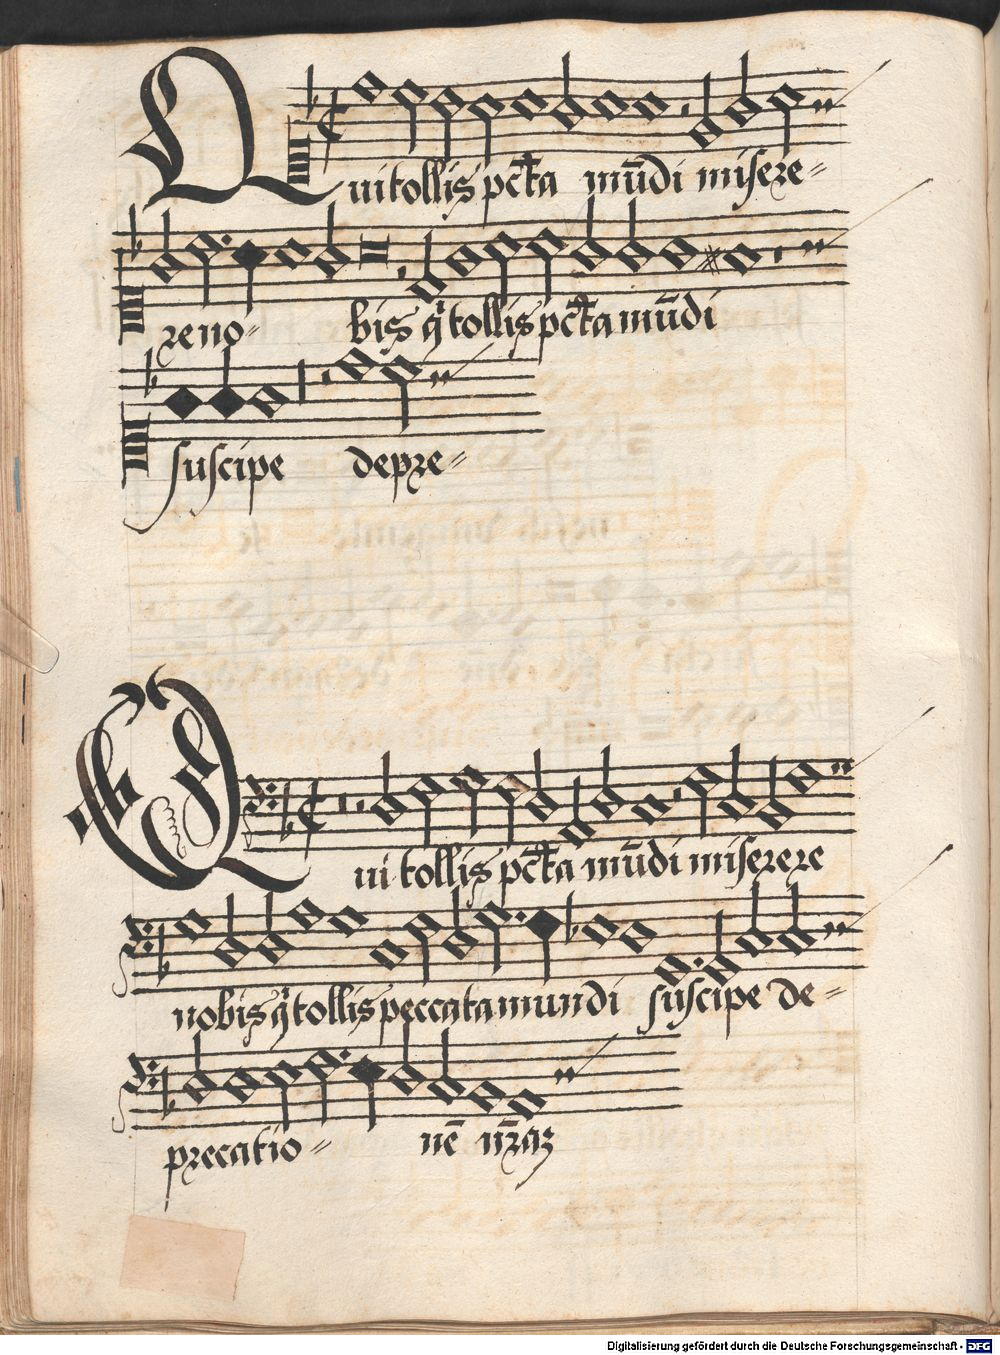 Qui tollis pc̄ta mūdi misere=
re no= bis q̇ tollis pc̄ta mūdi
suscipe depre=
Qui tollis pc̄ta mūdi miserere
nobis q̇ tollis peccata mundi suscipe de=
precatio= nē nr̄aꝫ
Digitalisierung gefördert durch die Deutsche Forschungsgemeinschaft - DFG